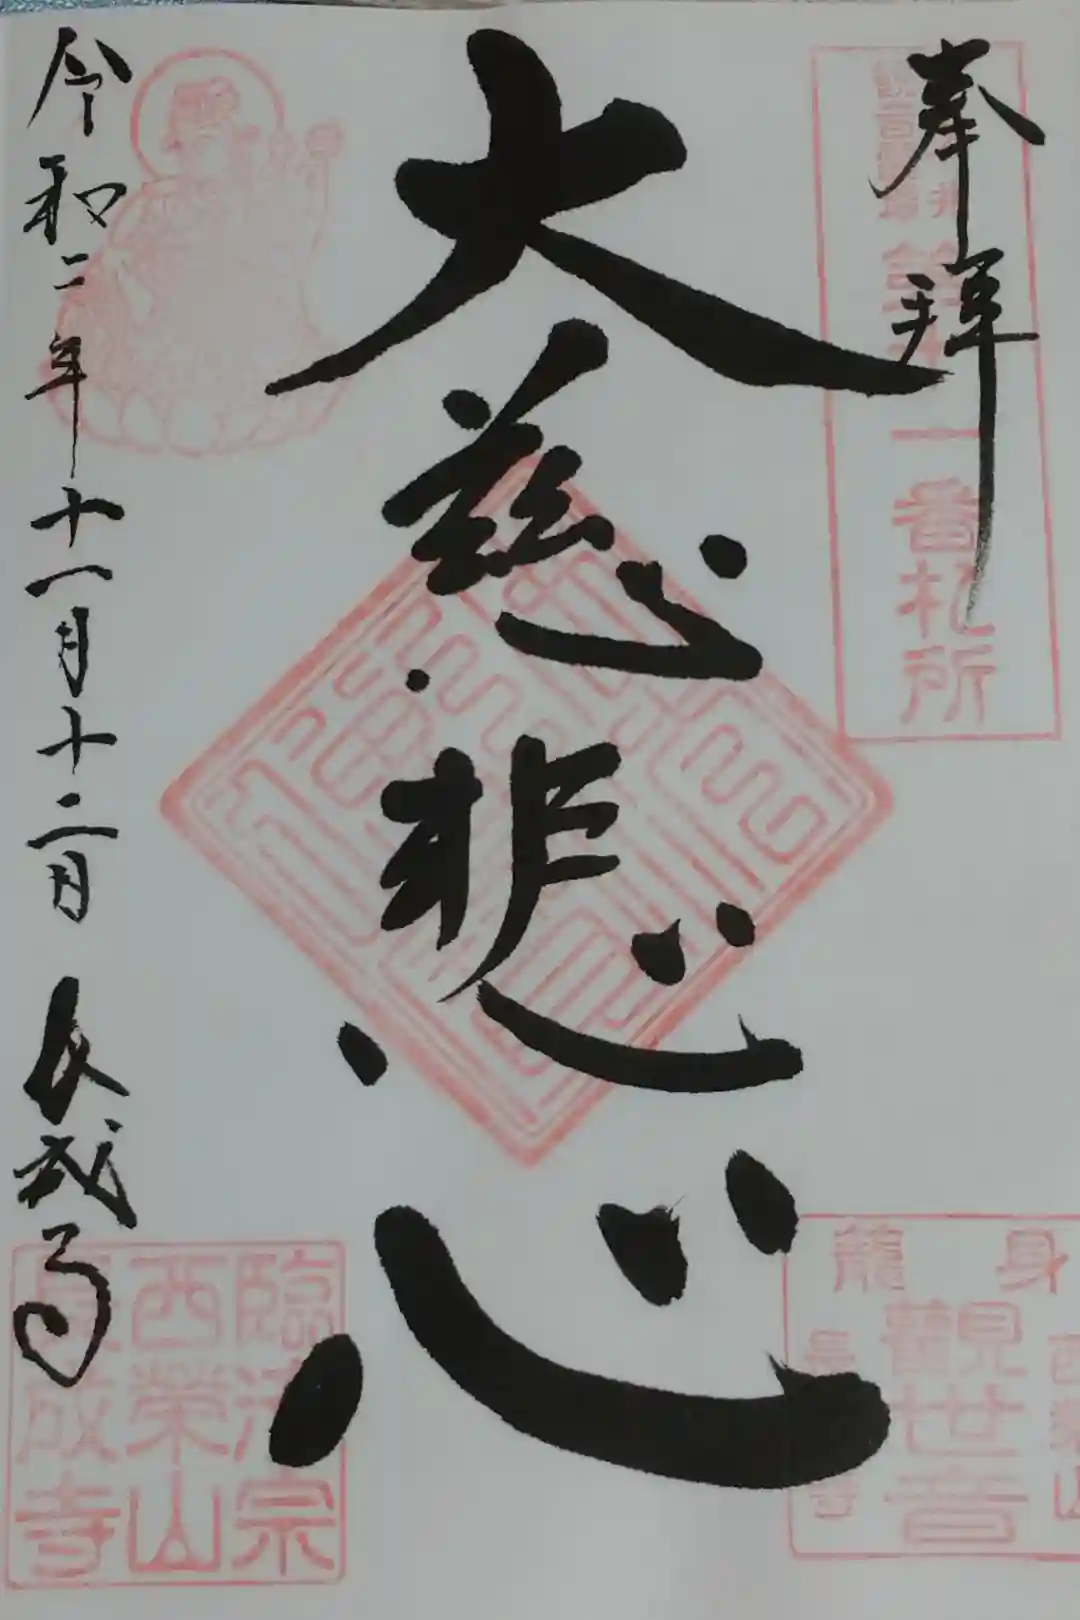 奉拝
第十一番札所
大慈悲心
身
籠
観世音
令和二年十一月十二日
長成寺
臨済宗
西榮山
長成寺